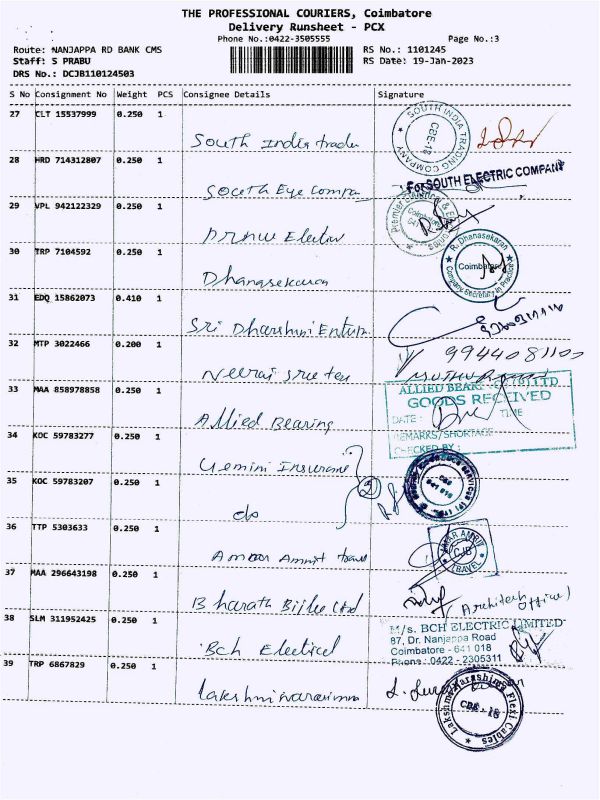 THE PROFESSIONAL COURIERS, Coimbatore
Delivery Runsheet - PCX
Phone No.:0422-3505555
Page No.:3
Route: NANJAPPA RD BANK CMS
RS No.: 1101245
Staff: S PRABU
RS Date: 19-Jan-2023
DRS No.: DCJB110124503
S No Consignment No Weight PCS Consignee Details Signature
27 CLT 15537999 0.250 1
South India trade
SOUTH INDIA TRADING COMPANY
CBE-18
28 HRD 714312807 0.250 1
South Eye Compa
For SOUTH ELECTRIC COMPANY
29 VPL 942122329 0.250 1
Premier
Coimbatore
30 TRP 7104592 0.250 1
Dhanasekaran
R. Dhanasekaran
Coimbatore
Company Secretary in Practice
31 EDQ 15862073 0.410 1
Sri Dharshni Enterp.
32 MTP 3022466 0.200 1
Neeraj sree tex
9944081100
33 MAA 858978858 0.250 1
Allied Bearing
ALLIED BEARI CO (P) LTD
GOODS RECEIVED
DATE: TIME
REMARKS/SHORTAGE
CHECKED BY:
34 KOC 59783277 0.250 1
Gemini Insurance
35 KOC 59783207 0.250 1
do
2
36 TTP 5303633 0.250 1
Ambar Amrit travel
AMBAR AMRIT
CJB
TRAVEL
37 MAA 296643198 0.250 1
Bharath Bijlee Ltd
(Architech office)
38 SLM 311952425 0.250 1
Bch Electricel
M/s. BCH ELECTRIC LIMITED
87, Dr. Nanjappa Road
Coimbatore - 641 018
Phone : 0422 - 2305311
39 TRP 6867829 0.250 1
Lakshminarasimma
Lakshmi Narashima Flexi Cables
CBE-18